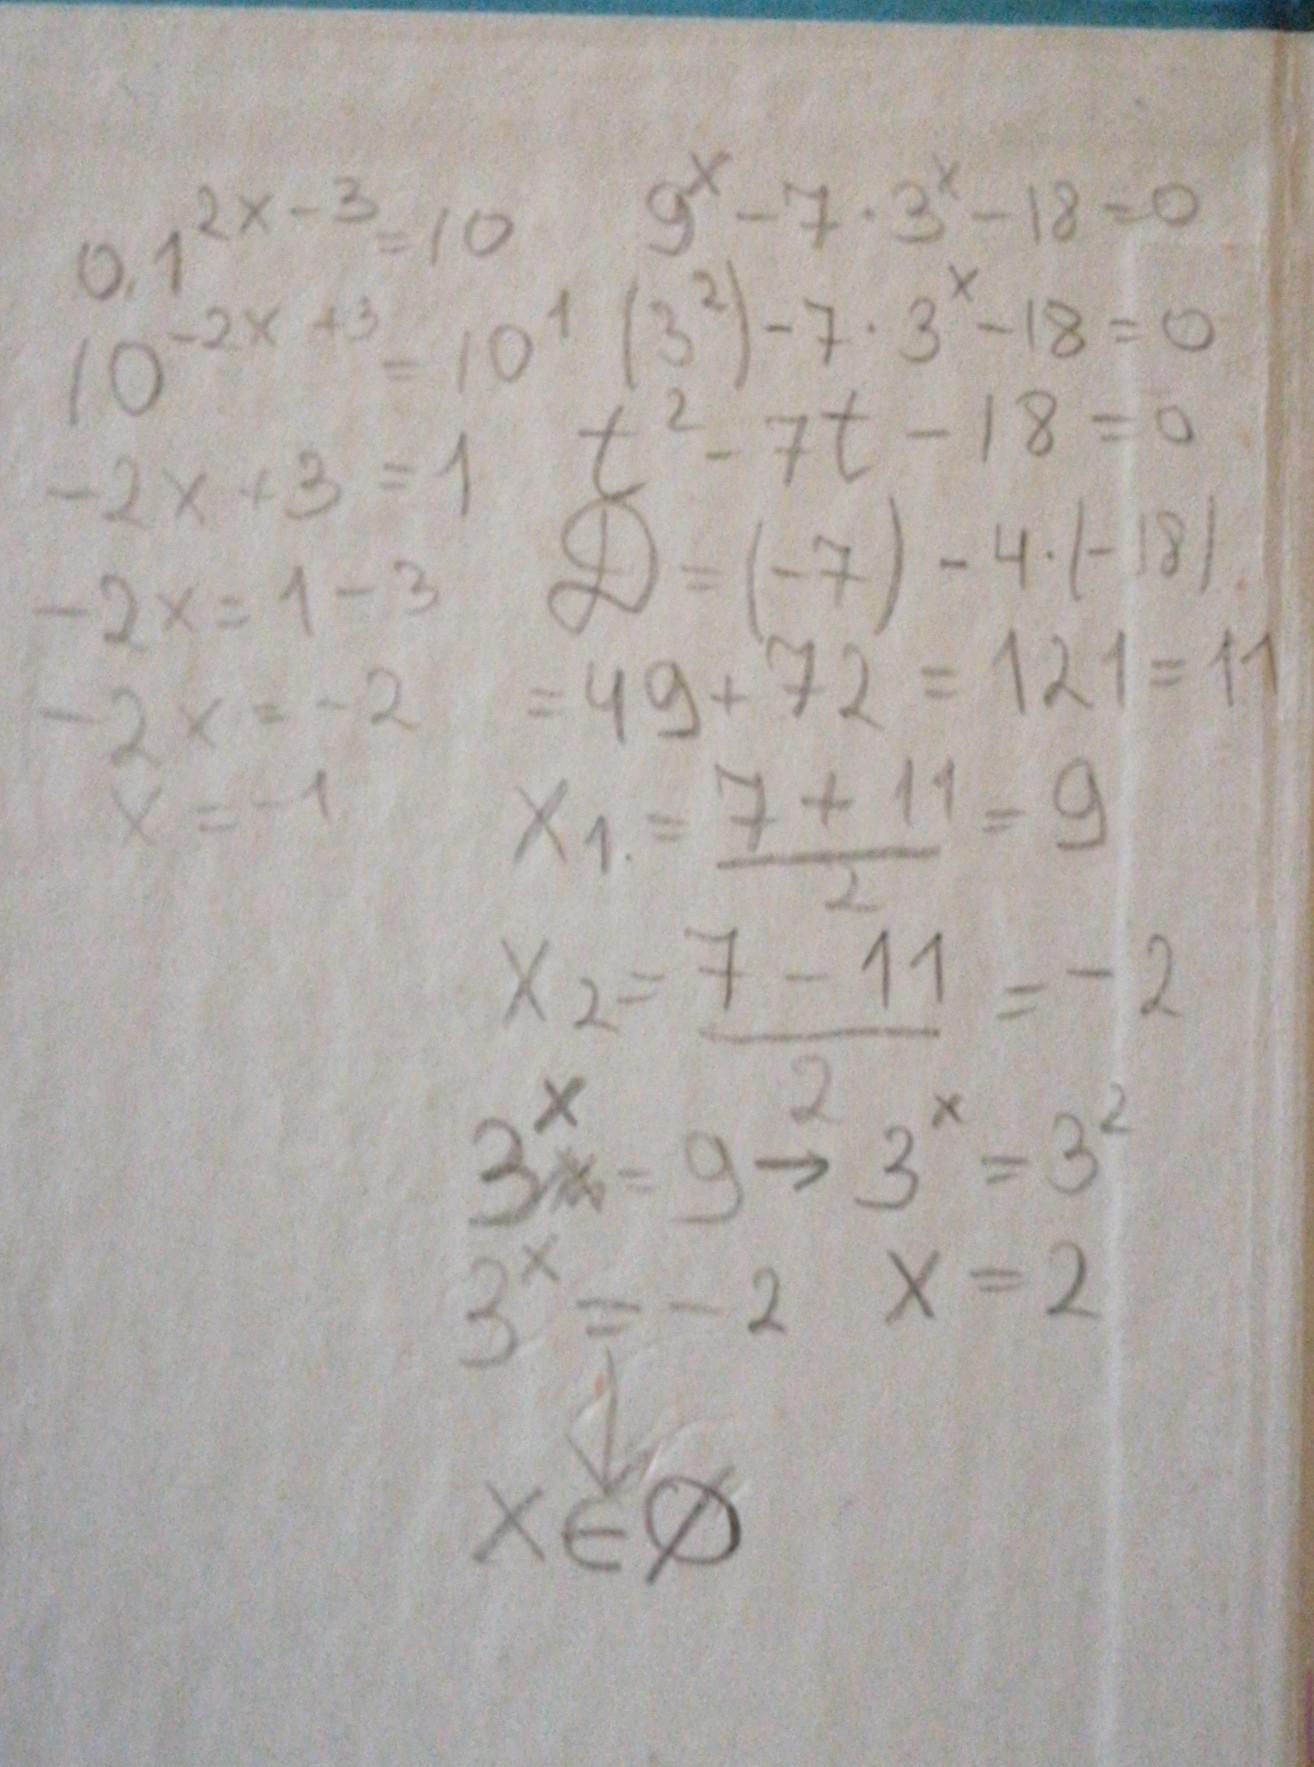 0,1^{2x-3}=10
10^{-2x+3}=10^1
-2x+3=1
-2x=1-3
-2x=-2
x=-1
9^x-7·3^x-18=0
(3^2)-7·3^x-18=0
t^2-7t-18=0
D=(-7)-4·(-18)
=49+72=121=11
x_1.=\frac{7+11}{2}=9
x_2=\frac{7-11}{2}=-2
3^x=9→3^x=3^2
3^x=-2 x=2
↓
x∈∅